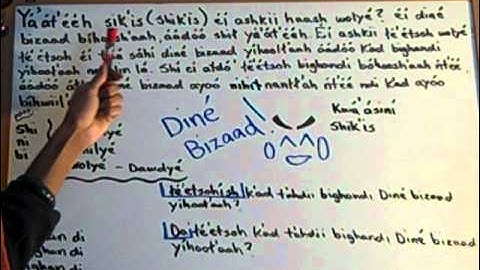 Yá'át'ééh sik'is (shik'is) éí ashkii haash wolyé? éí diné
bizaad bíhoosh'aah, áádóó shił yá'át'ééh. Éí ashkii té'étsoh wolyé
té'étsoh éí t'áá sáhí diné bizaad yíhooł'aah áádóó k'ad bighandi
yíhooł'aah lá. Shí éí ałdó' té'étsoh bighandi bóhoosh'aah ńt'éé
áádóó diné bizaad ayóó ńt'éé ndi k'ad ayóó
Diné
Bizaad
Kwá'ásiní
Shik'is
Shi
ni
bi
wolyé - Dawolyé
té'étsohísh k'ad t'ahdii bighandi Diné bizaad
yíhooł'aah?
Da té'étsoh k'ad t'ahdii bighandi Diné bizaad
yíhooł'aah?
ghan di
ghan di